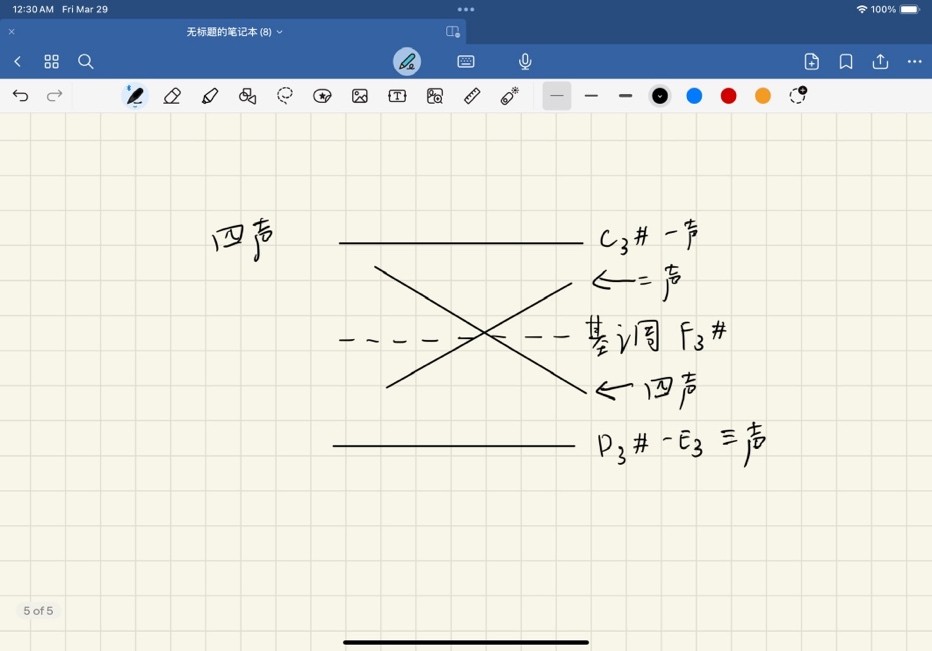 12:30 AM Fri Mar 29
100%
无标题的笔记本 (8)
四声
C₃# 一声
← 二声
基调 F₃#
← 四声
D₃# - E₃ 三声
5 of 5